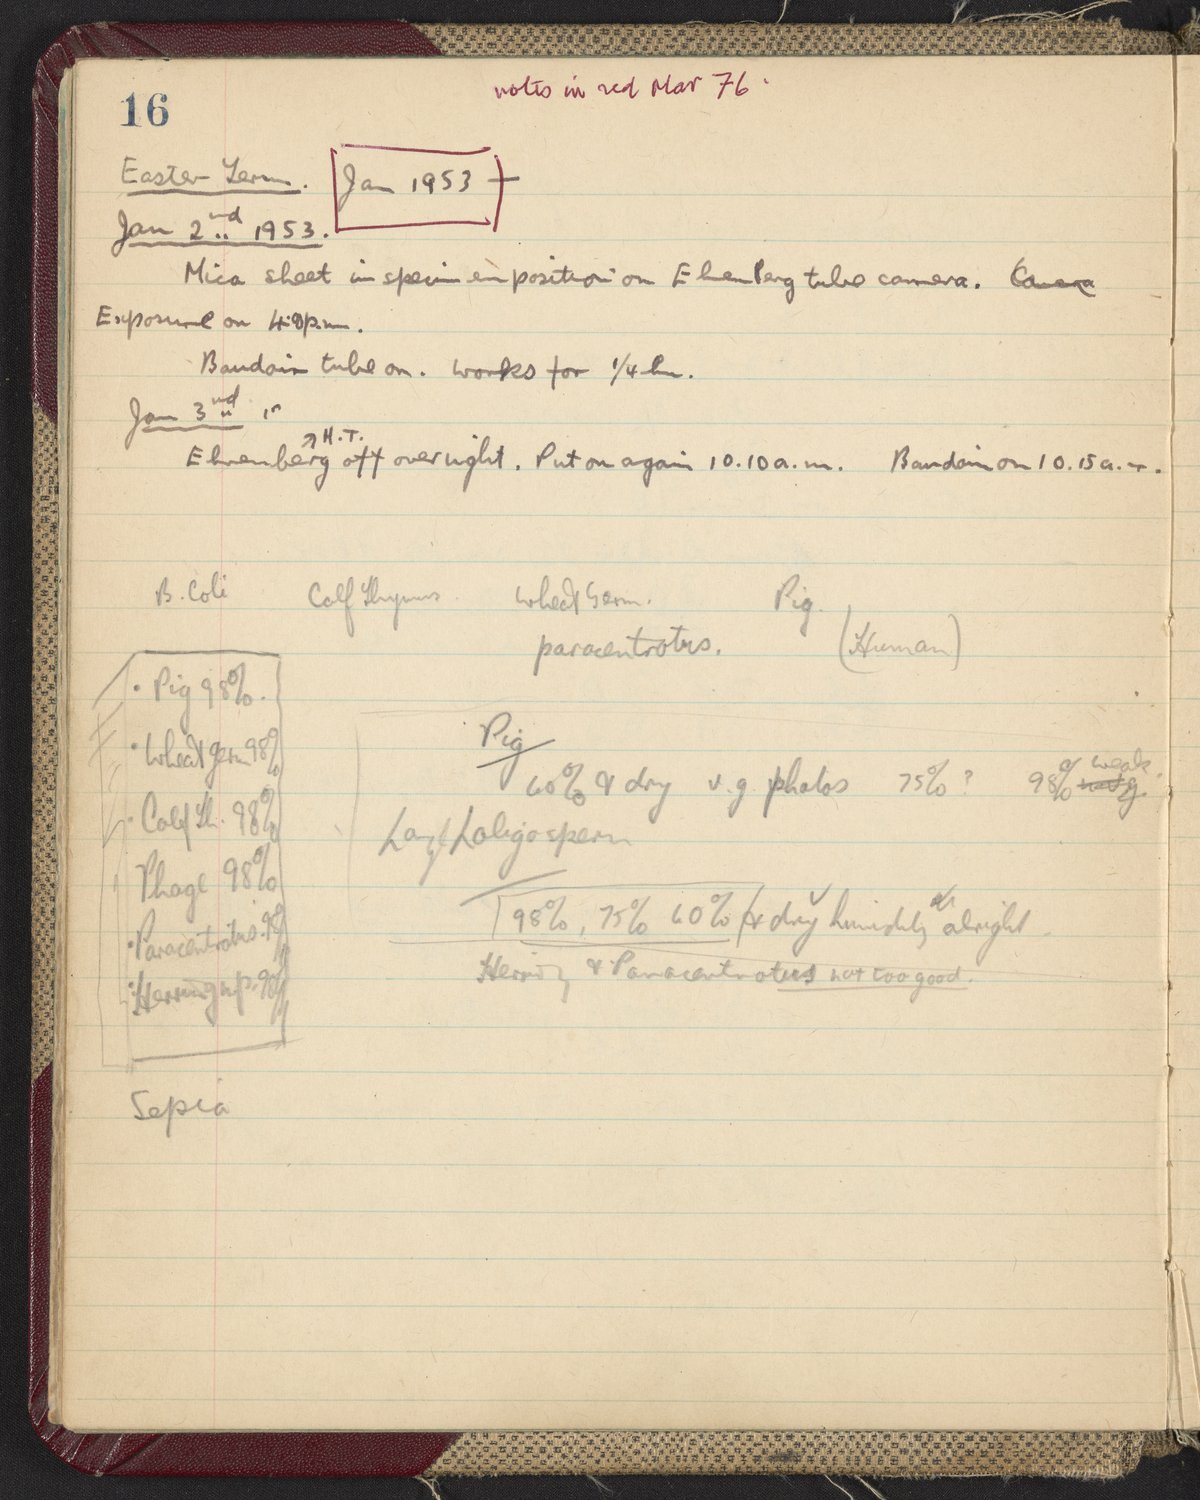 notes in red Mar 76
16
Easter Term. Jan 1953
Jan 2nd 1953.
Mica sheet in specimen position on Ehrenberg tube camera. Camera
Exposure on 4.0p.m.
Baudoin tube on. works for 1/4 hr.
Jan 3rd
↗ H.T.
Ehrenberg off overnight. Put on again 10.10a.m. Baudoin on 10.15a.m.
B. Coli Calf Thymus. Wheat Germ. Pig.
paracentrotus. (Human)
• Pig 98%.
• Wheat germ 98%
• Calf Th. 98%
Phage 98%
• Paracentrotus 98%
• Herring sp. 98%
Sepia
Pig
60% & dry v.g. photos 75% ? 98% not g. weak.
Loligo sperm
98%, 75% 60% & dry humidity alright
Herring & Paracentrotus not too good.